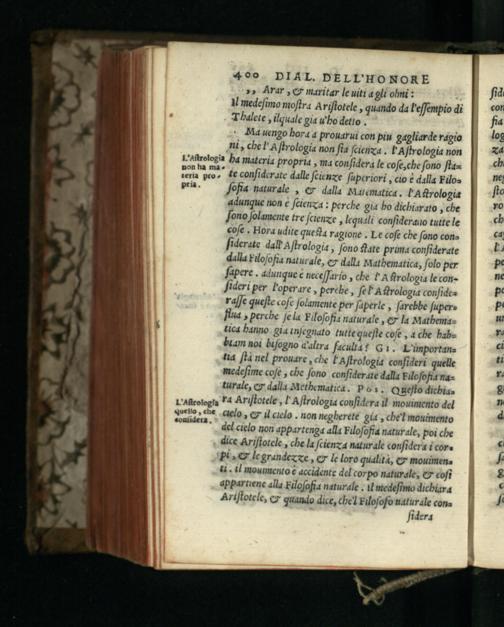 400 DIAL. DELL'HONORE
,, Arar, & maritar le uiti a gli olmi:
Il medesimo mostra Aristotele, quando da l'essempio di
Thalete, ilquale gia u'ho detto.
Ma uengo hora a prouarui con piu gagliarde ragio
ni, che l'Astrologia non sia scienza. l'Astrologia non
L'Astrologia
non ha ma-
teria pro-
pria.
ha materia propria, ma considera le cose, che sono sta-
te considerate dalle scienze superiori, cio è dalla Filo-
sofia naturale, & dalla Matematica. l'Astrologia
adunque non è scienza: perche gia ho dichiarato, che
sono solamente tre scienze, lequali considerano tutte le
cose. Hora udite questa ragione. Le cose che sono con-
siderate dall'Astrologia, sono state prima considerate
dalla Filosofia naturale, & dalla Mathematica, solo per
sapere. adunque è necessario, che l'Astrologia le con-
sideri per l'operare, perche, se l'Astrologia conside-
rasse queste cose solamente per saperle, sarebbe super-
flua, perche se la Filosofia naturale, & la Mathema-
tica hanno gia insegnato tutte queste cose, a che hab-
biam noi bisogno d'altra facultà? GI. L'importan-
tia stà nel prouare, che l'Astrologia consideri quelle
medesime cose, che sono considerate dalla Filosofia na-
turale, & dalla Methematica. POS. Questo dichia-
L'Astrologia
quello, che
considera.
ra Aristotele, l'Astrologia considera il mouimento del
cielo, & il cielo. non negherete gia, che'l mouimento
del cielo non appartenga alla Filosofia naturale, poi che
dice Aristotele, che la scienza naturale considera i cor-
pi, & le grandezze, & le loro qualità, & mouimen-
ti. il mouimento è accidente del corpo naturale, & così
appartiene alla Filosofia naturale. il medesimo dichiara
Aristotele, & quando dice, che'l Filosofo naturale con-
sidera